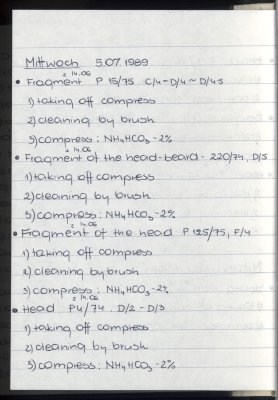 Mittwoch 5.07.1989
z 14.06
• Fragment P 15/75 C/4=D/4~D/4.5
1) taking off compress
2) cleaning by brush
3) compress: NH4HCO3-2%
z 14.06
• Fragment of the head-beard - 220/74, D/5
1) taking off compress
2) cleaning by brush
3) compress: NH4HCO3-2%
z 14.06
• Fragment of the head P 125/75, F/4
1) taking off compress
2) cleaning by brush
3) compress: NH4HCO3-2%
z 14.06
• Head P4/74 D/2-D/3
1) taking off compress
2) cleaning by brush
3) compress: NH4HCO3-2%